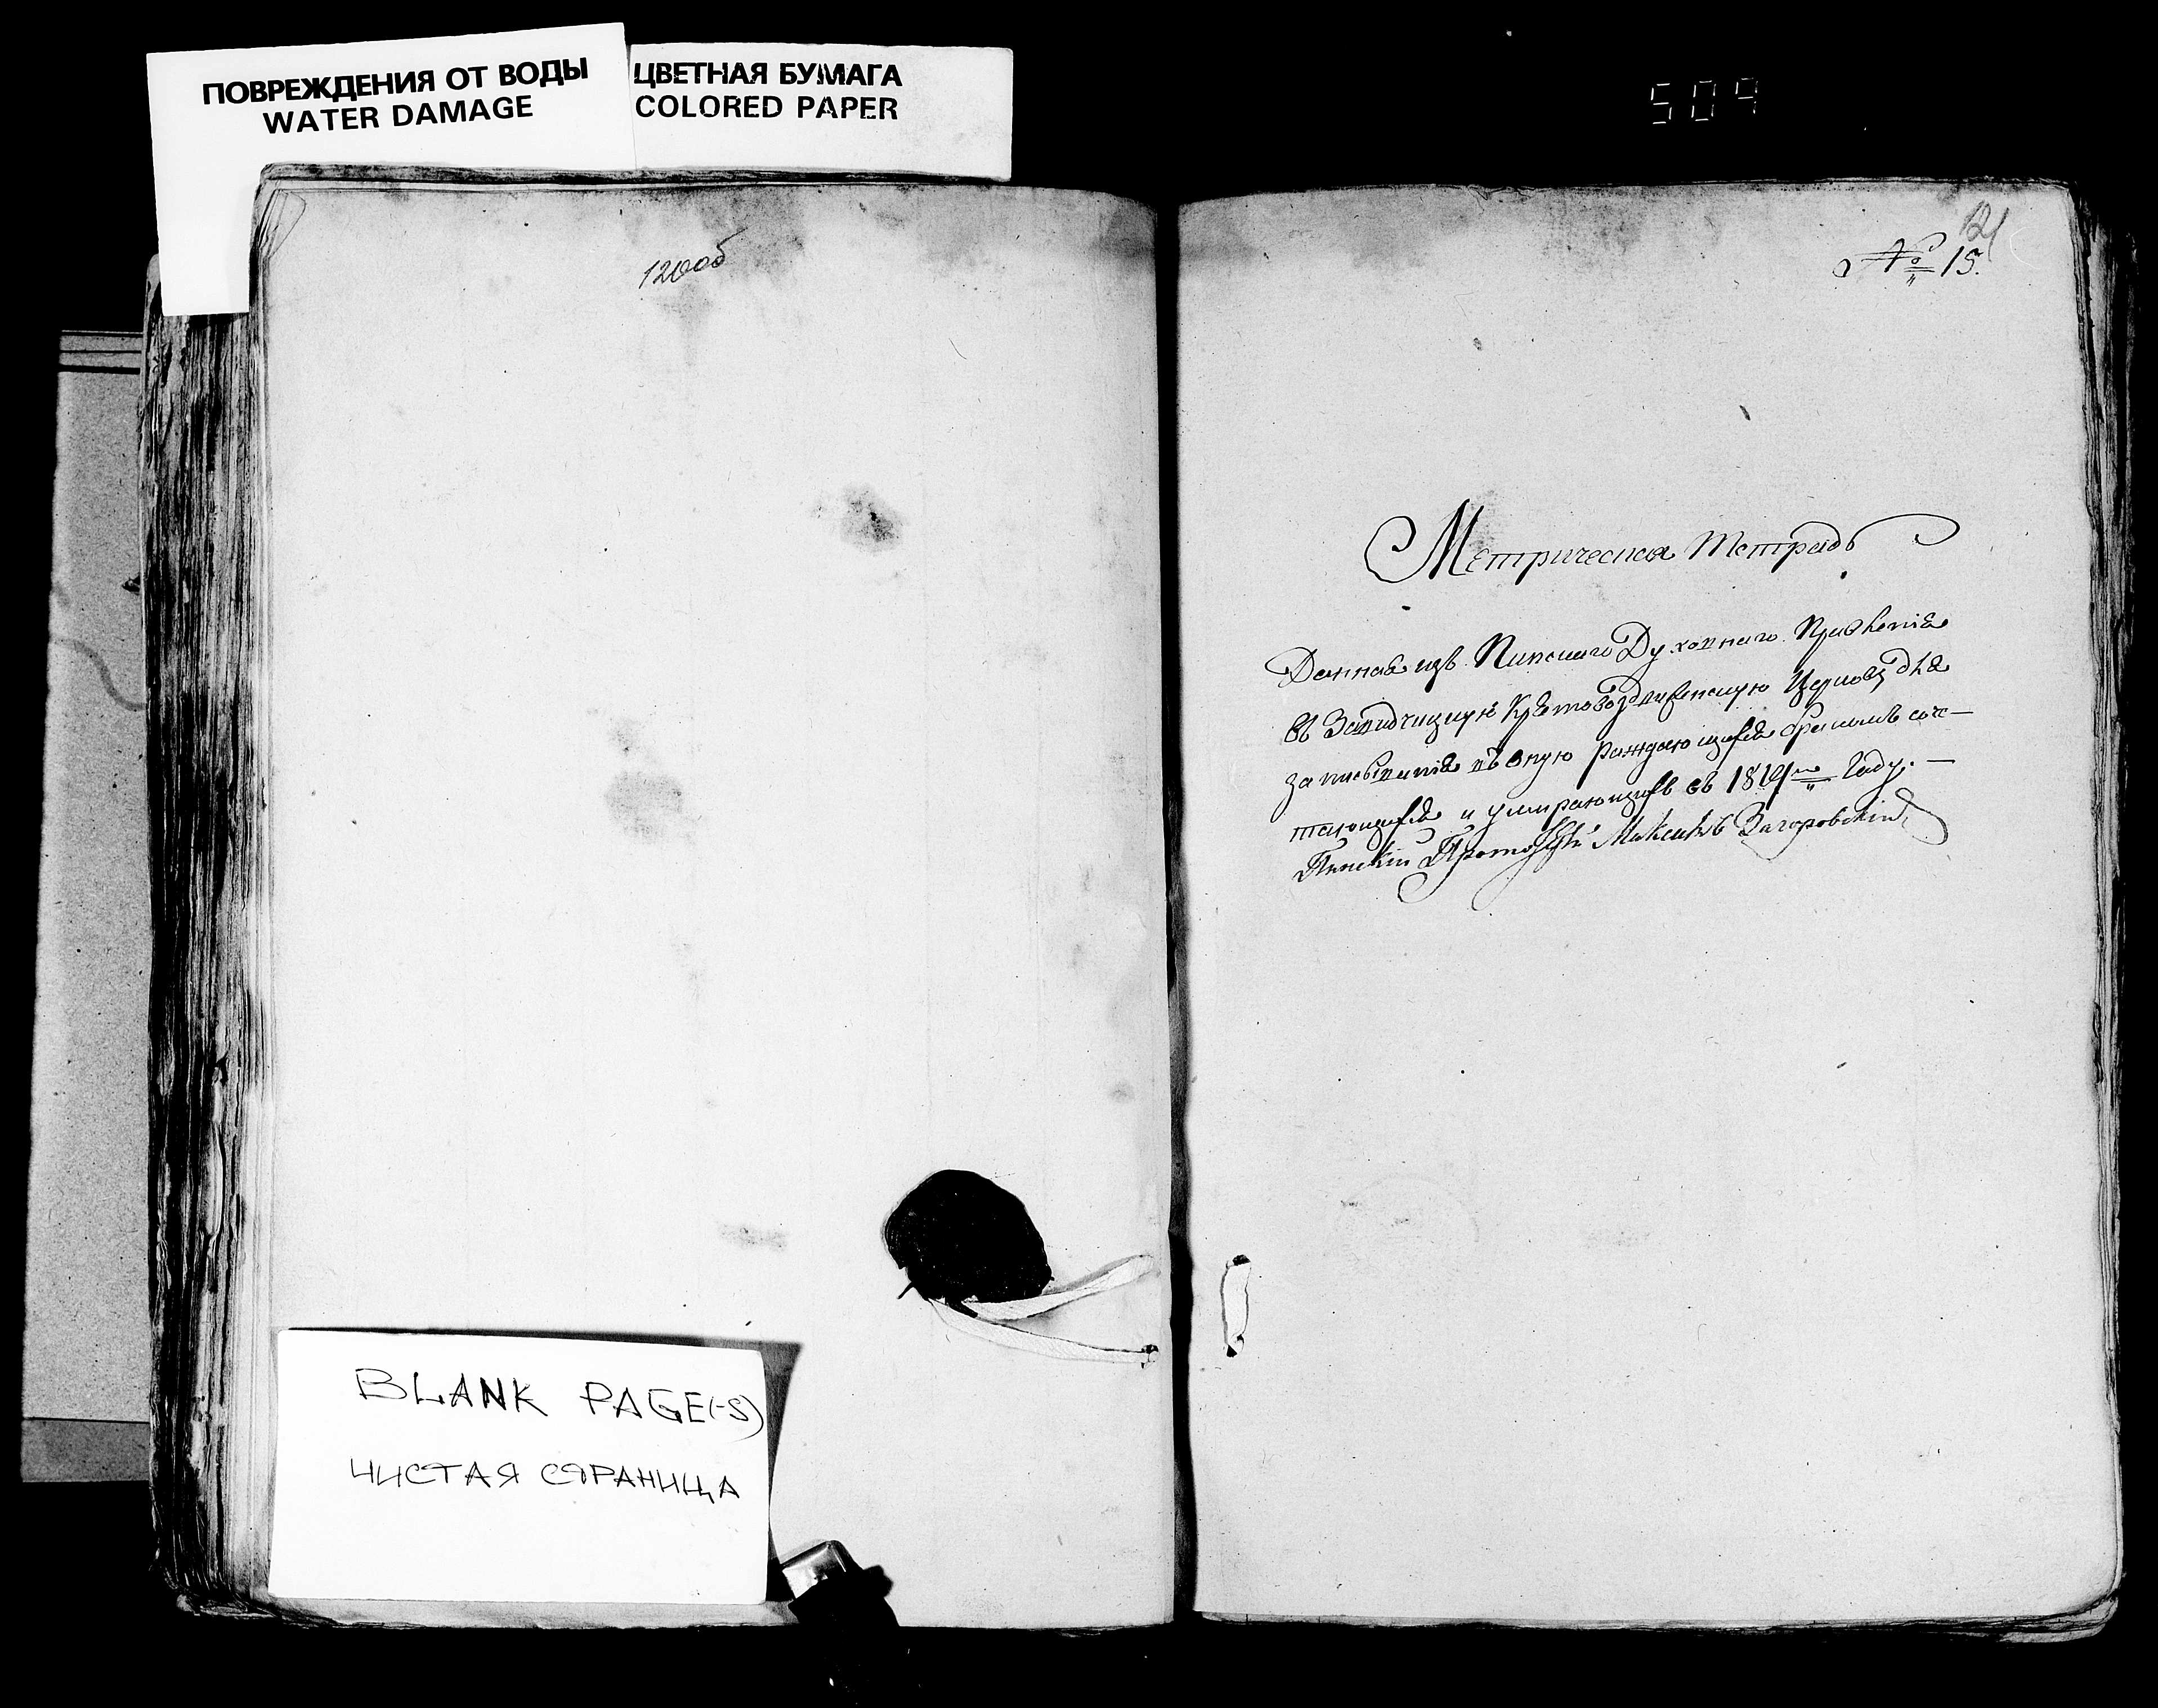 ПОВРЕЖДЕНИЯ ОТ ВОДЫ
WATER DAMAGE
ЦВЕТНАЯ БУМАГА
COLORED PAPER
509
120об
121
№ 15.
Метрическая тетрадь
Данная изъ Пинскаго Духовнаго Правленія
въ Крестовоздвиженскую Церковь для
записыванія въ оную раждающихся бракомъ соче-
тающихся и умирающихъ съ 1819го году.
Пинскій Протоіерей Загоровскій
BLANK PAGE(-S)
ЧИСТАЯ СТРАНИЦА